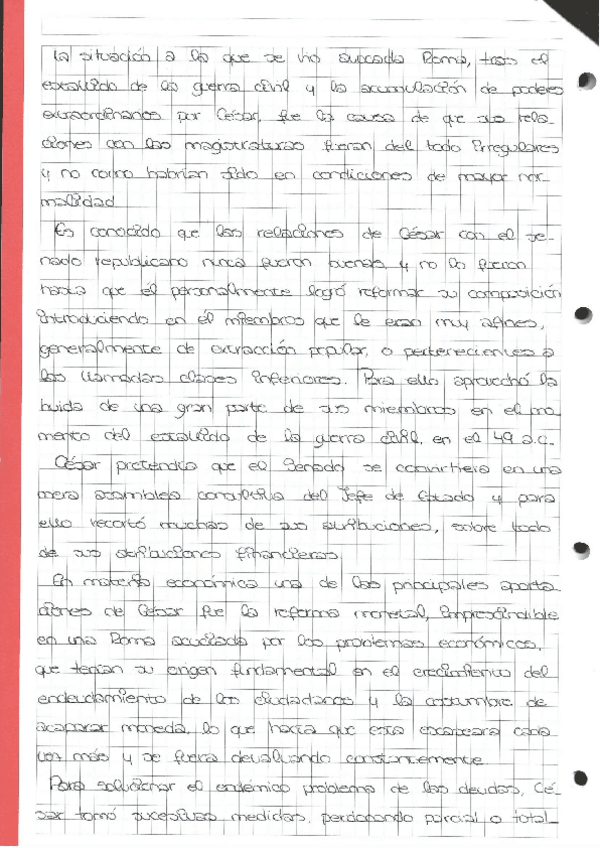 La situación a la que se vio avocada Roma, tras el
estallido de la guerra civil y la acumulación de poderes
extraordinarios por César, fue la causa de que sus rela-
ciones con las magistraturas fueran del todo irregulares
y no como habrían sido en condiciones de mayor nor-
malidad.
Es conocido que las relaciones de César con el se-
nado republicano nunca fueron buenas y no lo fueron
hasta que él personalmente logró reformar su composición
introduciendo en él miembros que le eran muy afines,
generalmente de extracción popular, o pertenecientes a
las llamadas clases inferiores. Para ello aprovechó la
huida de una gran parte de sus miembros en el mo-
mento del estallido de la guerra civil, en el 49 a.C.
César pretendía que el Senado se convirtiera en una
mera asamblea consultiva del Jefe de Estado y para
ello recortó muchas de sus atribuciones, sobre todo
de sus atribuciones financieras.
En materia económica una de las principales aporta-
ciones de César fue la reforma monetal, imprescindible
en una Roma acuciada por los problemas económicos,
que tenían su origen fundamental en el crecimiento del
endeudamiento de los ciudadanos y la costumbre de
acaparar moneda, lo que hacía que esta escaseara cada
vez más y se fuera devaluando constantemente.
Para solucionar el endémico problema de las deudas, Cé-
sar tomó sucesivas medidas, perdonando parcial o total-